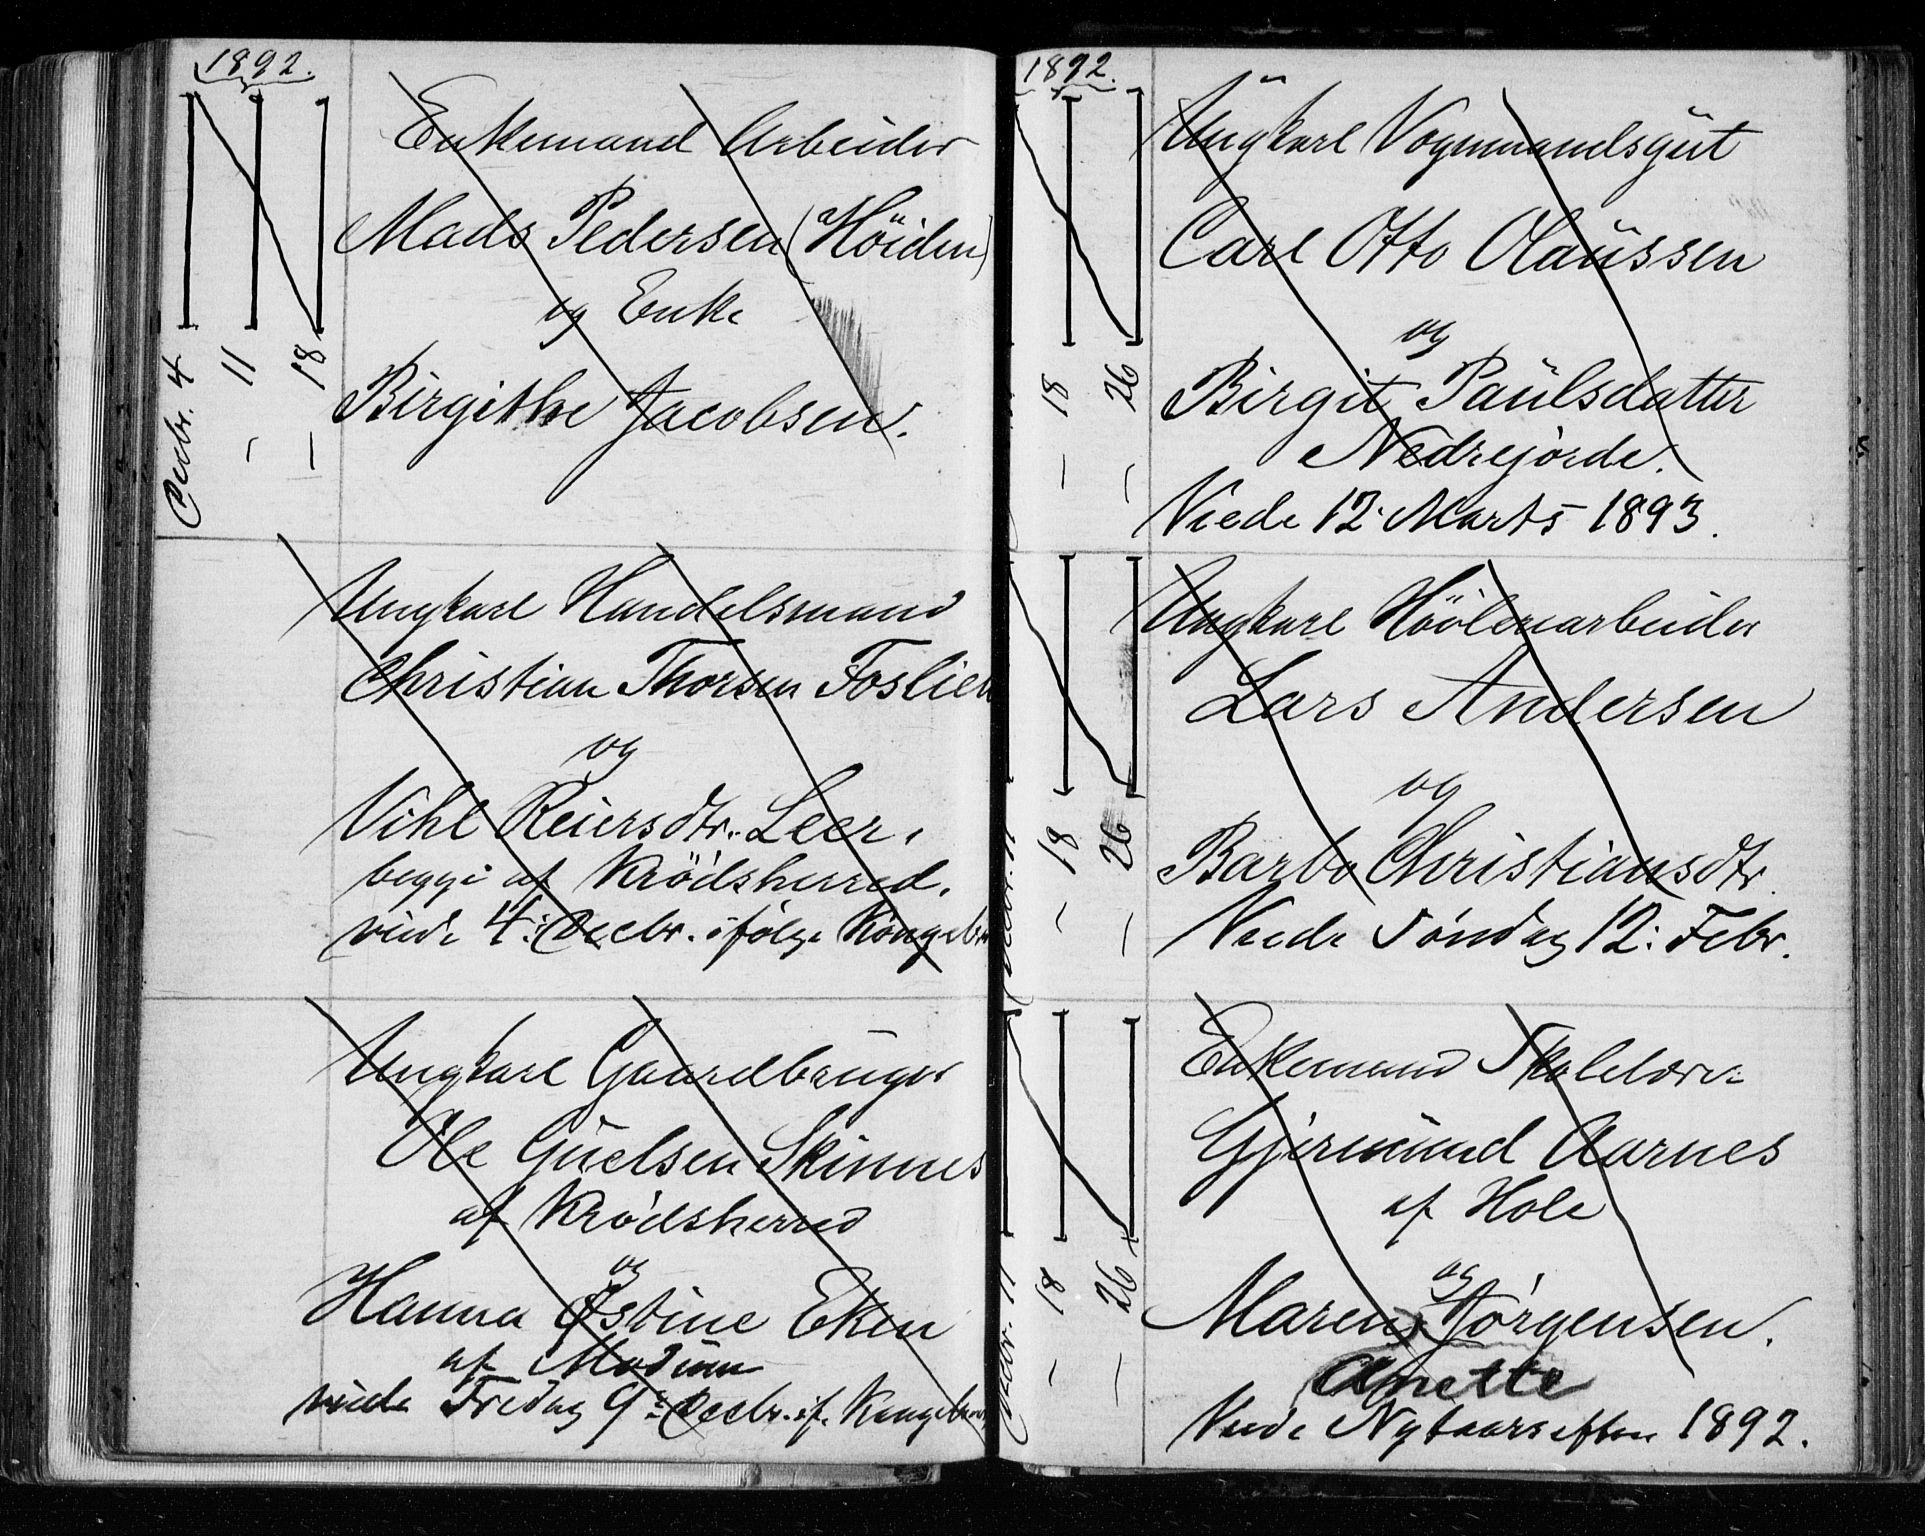 1892.
Enkemand Arbeider
Mads Pedersen (Höiden)
og Enke
Birgithe Jacobsen.
Decbr. 4
— 11
— 18
Ungkarl Handelsmand
Christian Thorsen Foslien
og
Vihl Reiersdtr. Leer.
begge af Krödsherred.
viede 4: Decbr. ifølge Kongebr
Ungkarl Gaardbruger
Ole Guelsen Skinnes
af Krødsherred
og
Hanna Østine Eken
af Modum
viede Fredag 9: Decbr. if. Kongebrev
1892.
Ungkarl Vognmandsgut
Carl Otto Olaussen
og
Birgit Paulsdatter
Nedrejorde.
Viede 12. Marts 1893.
— 18
— 26
Ungkarl Höölenarbeider
Lars Andersen
og
Barbo Christiansdtr.
Viede Søndag 12: Febr.
Decbr. 11
— 18
— 26
Enkemand Skolelærer
Gjermund Aarnes
af Hole
og
Maren Jørgensen.
Anette
Viede Nytaarsaften 1892.
Decbr. 11
— 18
— 26